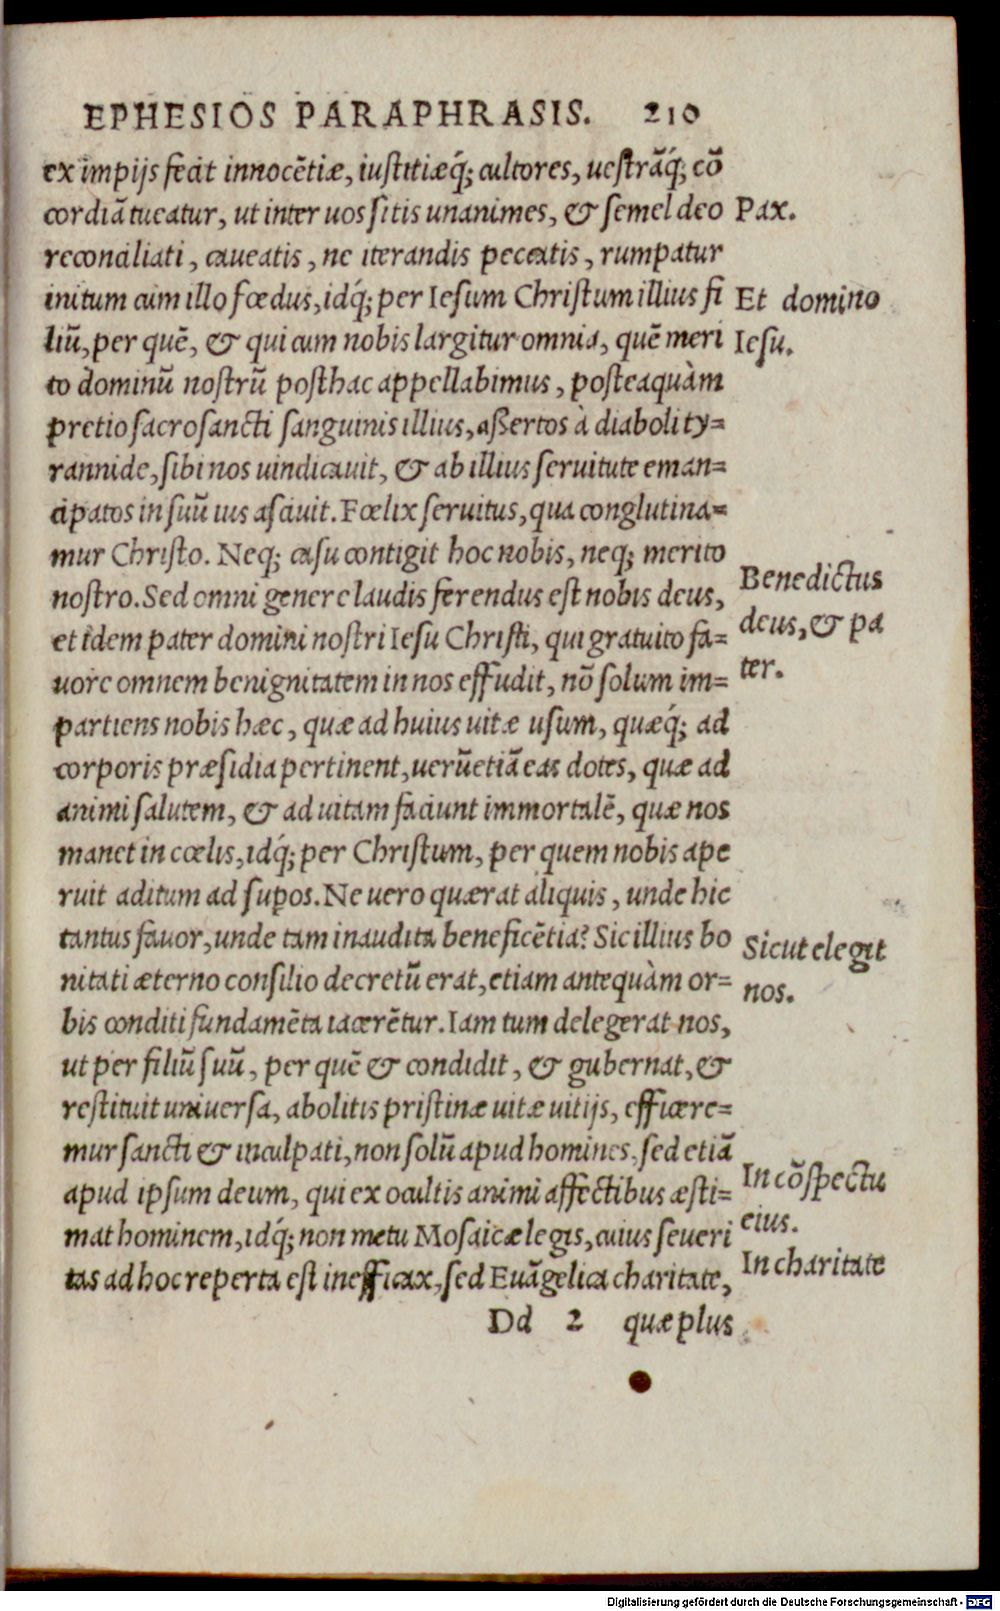 EPHESIOS PARAPHRASIS. 210
ex impijs fecit innocētiæ, iustitiæq́; cultores, uestrāq́; cō
cordiā tueatur, ut inter uos sitis unanimes, & semel deo
Pax.
reconciliati, caueatis, ne iterandis peccatis, rumpatur
initum cum illo fœdus, idq́; per Iesum Christum illius fi
Et domino
liū, per quē, & qui cum nobis largitur omnia, quē meri
Iesu.
to dominū nostrū posthac appellabimus, posteaquàm
pretio sacrosancti sanguinis illius, aßertos à diaboli ty=
rannide, sibi nos uindicauit, & ab illius seruitute eman=
cipatos in suū ius asciuit. Fœlix seruitus, qua conglutina=
mur Christo. Neq; casu contigit hoc nobis, neq; merito
nostro. Sed omni genere laudis ferendus est nobis deus,
Benedictus
et idem pater domini nostri Iesu Christi, qui gratuito fa=
deus, & pa
uore omnem benignitatem in nos effudit, nō solum im=
ter.
partiens nobis hæc, quæ ad huius uitæ usum, quæq́; ad
corporis præsidia pertinent, uerūetiā eas dotes, quæ ad
animi salutem, & ad uitam faciunt immortalē, quæ nos
manet in cœlis, idq́; per Christum, per quem nobis ape
ruit aditum ad supos. Ne uero quærat aliquis, unde hic
tantus fauor, unde tam inaudita beneficētia? Sic illius bo
Sicut elegit
nitati æterno consilio decretū erat, etiam antequàm or=
nos.
bis conditi fundamēta iacerētur. Iam tum delegerat nos,
ut per filiū suū, per quē & condidit, & gubernat, &
restituit uniuersa, abolitis pristinæ uitæ uitijs, efficere=
mur sancti & inculpati, non solū apud homines, sed etiā
apud ipsum deum, qui ex ocultis animi affectibus æsti=
In cōspectu
mat hominem, idq́; non metu Mosaicæ legis, cuius seueri
eius.
tas ad hoc reperta est inefficax, sed Euāgelica charitate,
In charitate
Dd 2 quæ plus
Digitalisierung gefördert durch die Deutsche Forschungsgemeinschaft - DFG